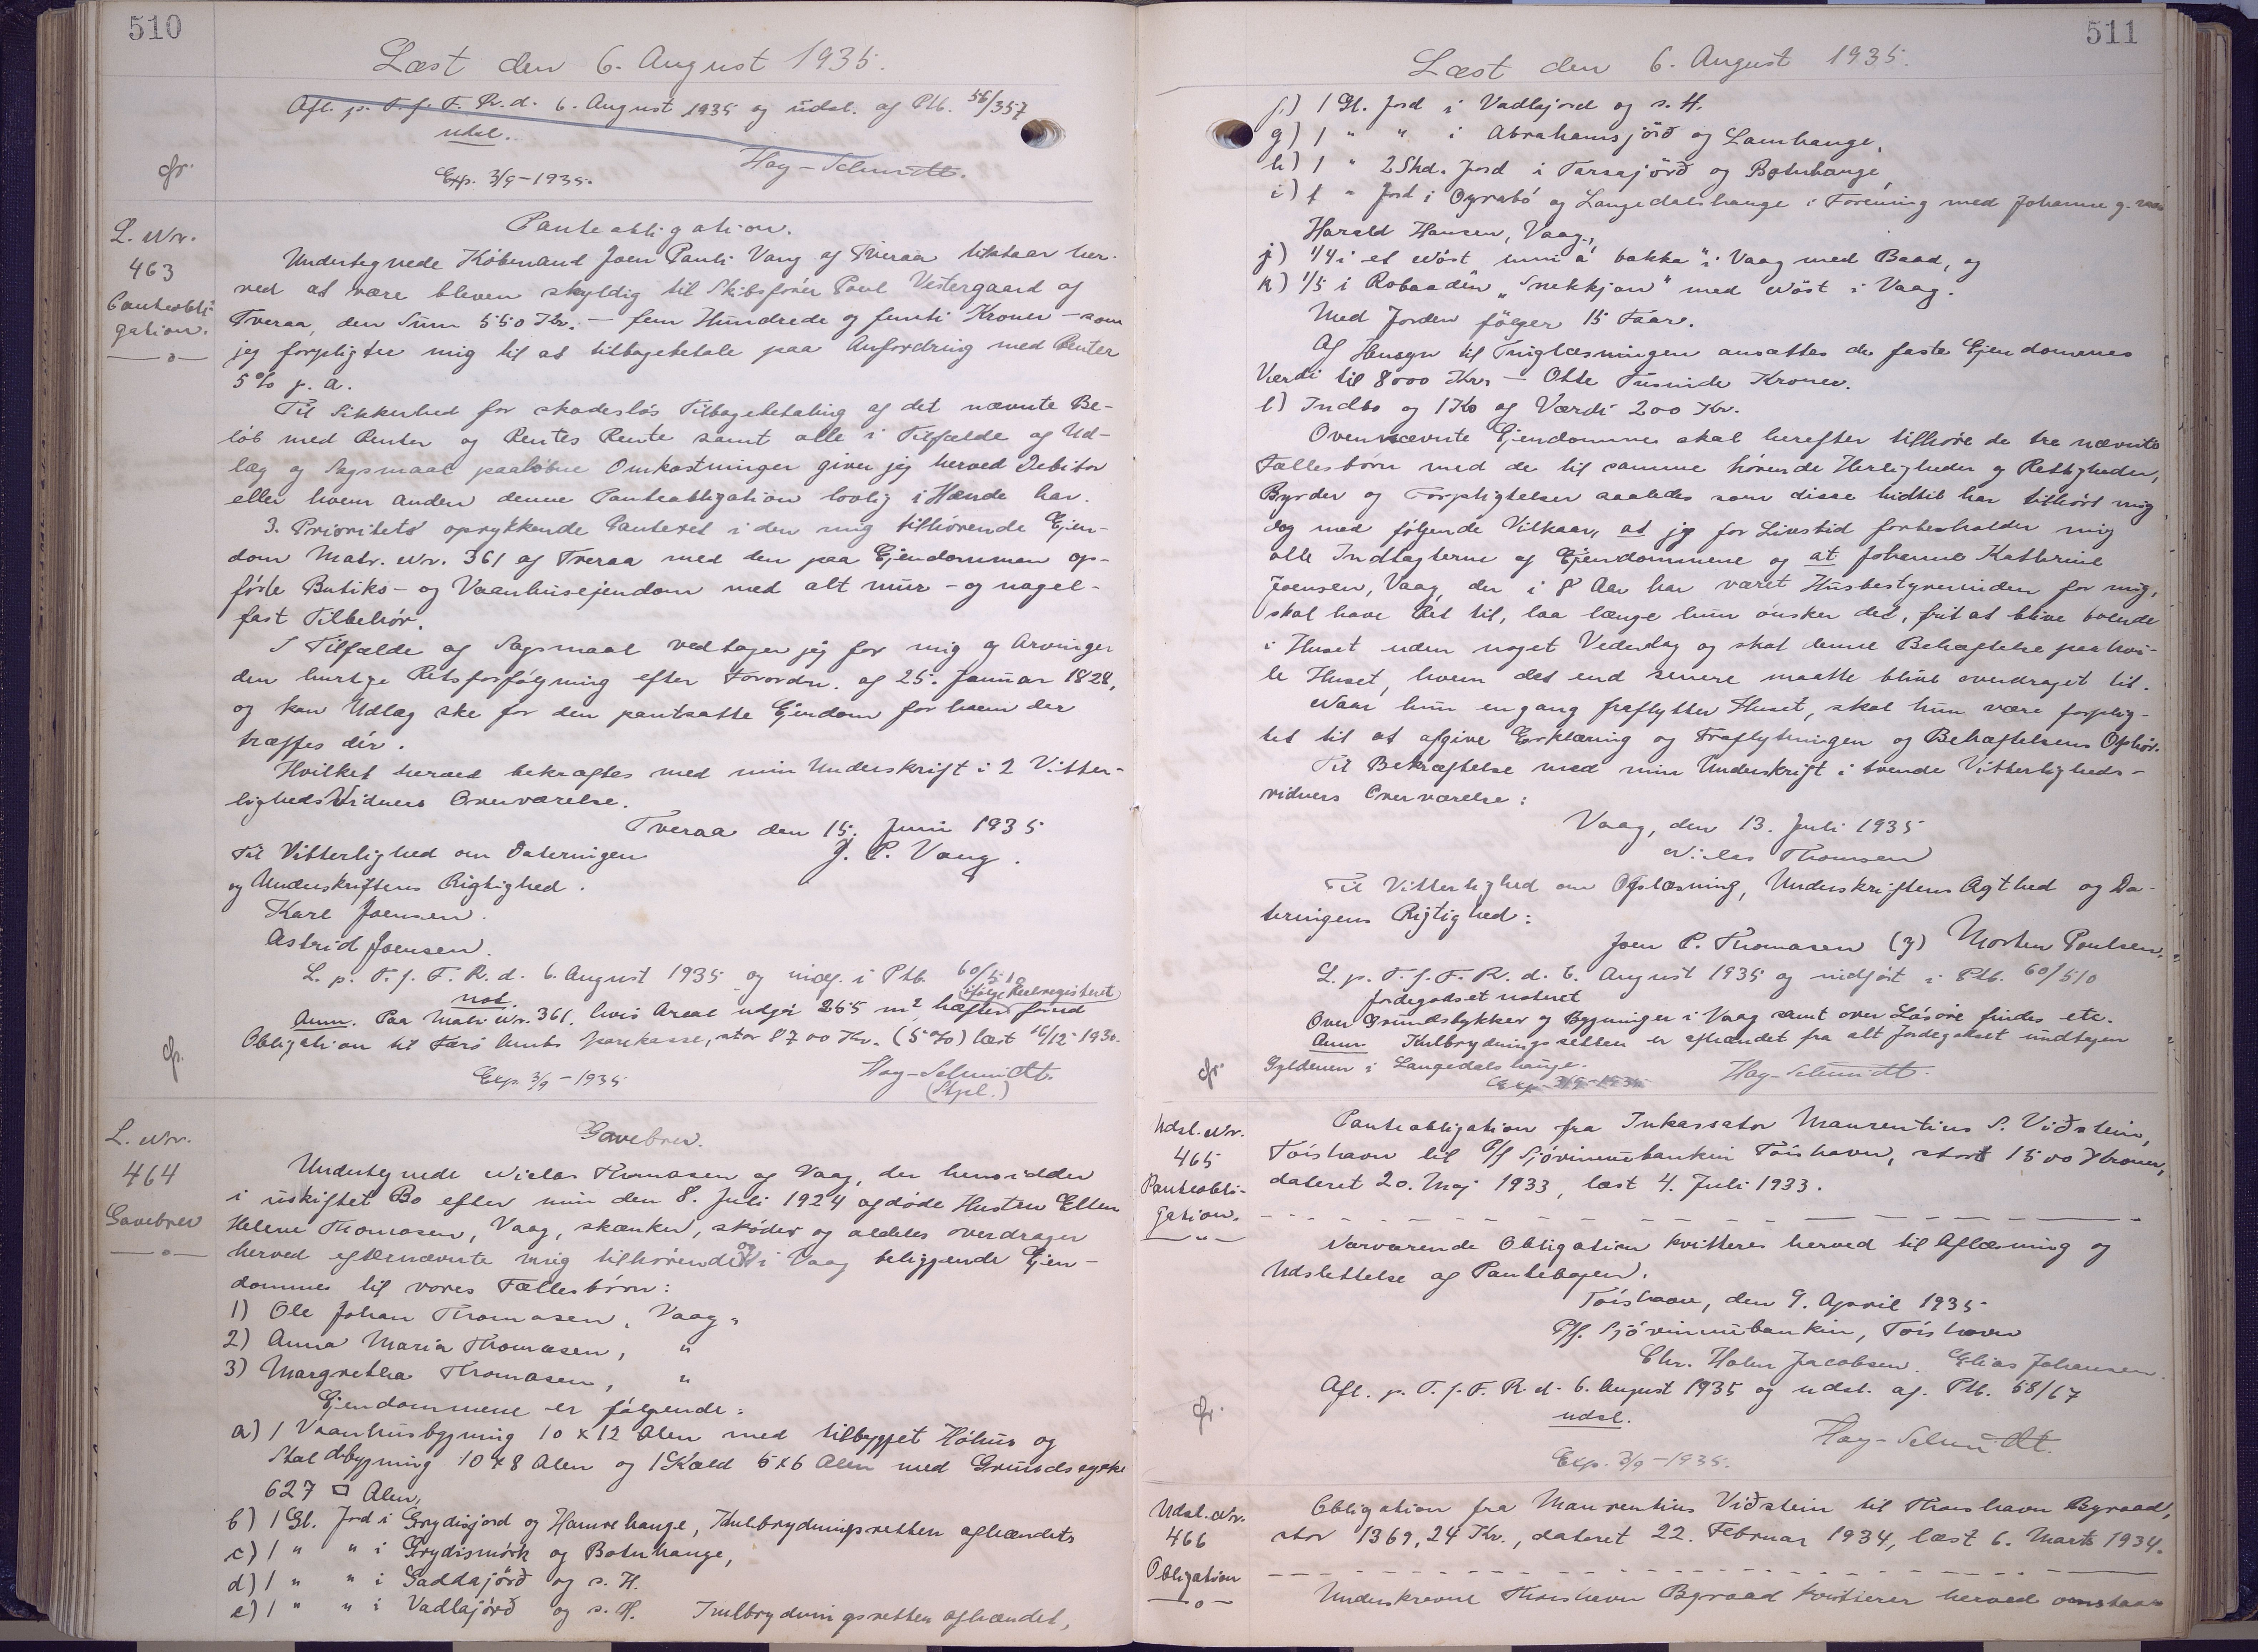 510
Læst den 6. August 1935.
Afl. p. T. f. F. R. d. 6. August 1935 og udsl. af Ptb. 56/357
udsl.
Hay-Schmidt.
Exp. 3/9-1935.
L. Nr.
463
Panteobli-
gation.
Panteobligation.
Undertegnede Købmand Joen Pauli Vang af Tveraa tilstaar her-
ved at være bleven skyldig til Skibsfører Poul Vestergaard af
Tveraa, den Sum 550 Kr. - fem Hundrede og femti Kroner - som
jeg forpligter mig til at tilbagebetale paa Anfordring med Renter
5% p. a.
Til Sikkerhed for skadesløs Tilbagebetaling af det nævnte Be-
løb med Renter og Rentes Rente samt alle i Tilfælde af Ud-
læg og Søgsmaal paaløbne Omkostninger giver jeg herved Debitor
eller hvem anden denne Panteobligation lovlig i Hænde har.
3. Prioritets oprykkende Panteret i den mig tilhørende Ejen-
dom Matr. Nr. 361 af Tveraa med den paa Ejendommen op-
førte Butiks- og Vaanhusejendom med alt mur- og nagel-
fast Tilbehør.
I Tilfælde af Søgsmaal vedtager jeg for mig og Arvinger
den hurtige Retsforfølgning efter Forordn. af 25. Januar 1828,
og kan Udlæg ske for den pantsatte Ejendom for hvem der
træffes dér.
Hvilket herved bekræftes med min Underskrift i 2 Vitter-
lighedsVidners Overværelse.
Tveraa den 15. Juni 1935
J. P. Vang.
Til Vitterlighed om Dateringen
og Underskriftens Rigtighed.
Karl Joensen.
Astrid Joensen.
L. p. T. f. F. R. d. 6. August 1935 og indf. i Ptb. 60/510
not. (ifølge Realregisteret)
Anm. Paa Matr. Nr. 361, hvis Areal udgør 265 m², hæfter forud
Obligation til Færø Amts Sparekasse, stor 8700 Kr. (5%) læst 16/12 1930.
Exp. 3/9-1935
Hay-Schmidt.
(Stpl.)
L. Nr.
464
Gavebrev
Gavebrev.
Undertegnede Niclas Thomasen af Vaag, der hensidder
i uskiftet Bo efter min den 8. Juli 1924 afdøde Hustru Ellen
Helene Thomasen, Vaag, skænker, skøder og aldeles overdrager
herved efternævnte mig tilhørende og i Vaag beliggende Ejen-
domme til vores Fællesbørn:
1) Ole Johan Thomasen, Vaag "
2) Anna Maria Thomasen, "
3) Margretha Thomasen, "
Ejendommene er følgende:
a) 1 Vaanhusbygning 10 x 12 Alen med tilbygget Høhus og
Staldbygning 10 x 8 Alen og 1 Kæld 5 x 6 Alen med Grundstykke
627 □ Alen,
b) 1 Gl. Jord i Grydisjord og Hamrehauge, Kulbrydningsretten afhændets
c) 1 " " i Grydismørk og Botnhauge,
d) 1 " " i Gaddajørð og s. H.
e) 1 " " i Vadlajørð og s. H. Kulbrydningsretten afhændet,
511
Læst den 6. August 1935.
f.) 1 Gl. Jord i Vadlajord og s. H.
g) 1 " " i Abrahamsjörð og Lamhauge,
h) 1 " 2 Skd. Jord i Tarsajörð og Botnhauge,
i) 1 " Jord i Oyrabó og Langedalshauge i Forening med Johanne g. m.
Harald Hansen, Vaag,
j) 1/4 i et Nöst "inni á bakka" i Vaag med Baad, og
k) 1/5 i Robaaden "Snekkjan" med Nöst i Vaag.
Med Jorden følger 15 Faar.
Af Hensyn til Tinglæsningen ansættes de faste Ejendommes
Værdi til 8000 Kr. - Otte Tusinde Kroner.
l) Indbo og 1 Ko af Værdi 200 Kr.
Ovennævnte Ejendomme skal herefter tilhøre de tre nævnte
Fællesbørn med de til samme hørende Herligheder og Rettigheder,
Byrder og Forpligtelser saaledes som disse hidtil har tilhørt mig
og med følgende Vilkaar, at jeg for Livstid forbeholder mig
alle Indtægterne af Ejendommene og at Johanne Katherine
Joensen, Vaag, der i 8 Aar har været Husbestyrerinden for mig,
skal have Ret til, saa længe hun ønsker det, frit at blive boende
i Huset uden noget Vederlag og skal denne Behæftelse paahvi-
le Huset, hvem det end senere maatte blive overdraget til.
Naar hun engang fraflytter Huset, skal hun være forplig-
tet til at afgive Erklæring og Fraflytningen og Behæftelsens Ophør.
Til Bekræftelse med min Underskrift i tvende Vitterligheds-
vidners Overværelse:
Vaag, den 13. Juli 1935
Niclas Thomsen
Til Vitterlighed om Oplæsning, Underskriftens Ægthed og Da-
teringens Rigtighed:
Joen P. Thomasen (g) Morten Poulsen.
L. p. T. f. F. R. d. 6. August 1935 og indført i Ptb. 60/510
Jordegodset noteret
Over Grundstykker og Bygninger i Vaag samt over Løsøre findes etc.
Anm. Kulbrydningsretten er afhændet fra alt Jordegodset undtagen
Gyldenen i Langedalshauge.
Exp. 3/9-1935
Hay-Schmidt.
Udsl. Nr.
465
Panteobli-
gation.
Panteobligation fra Inkassator Maurentius S. Viðstein,
Tórshavn til P/f Sjóvinnubankin Tórshavn, stort 1500 Kroner,
dateret 20. Maj 1933, læst 4. Juli 1933.
Nærværende Obligation kvitteres herved til Aflæsning og
Udslettelse af Pantebogen.
Tórshavn, den 9. April 1935
P/f. Sjóvinnubankin, Tórshavn
Chr. Holm Jacobsen. Elias Johansen.
Afl. p. T. f. F. R. d. 6. August 1935 og udsl. af. Ptb. 58/67
udsl.
Hay-Schmidt.
Exp. 3/9-1935.
Udsl. Nr.
466
Obligation
Obligation fra Maurentius Viðstein til Thorshavn Byraad,
stor 1369,24 Kr., dateret 22. Februar 1934, læst 6. Marts 1934.
Underskrevne Thorshavn Byraad kvitterer herved omstaa-